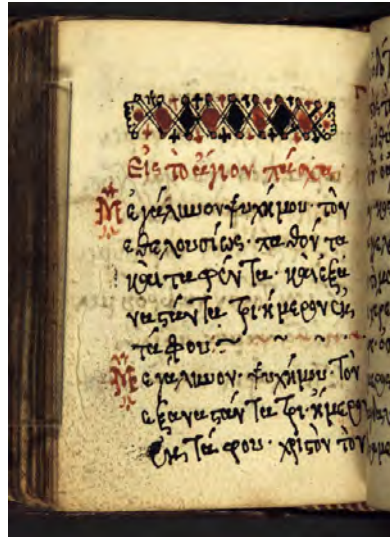 Εἰς τὸ ἅγιον πάσχα·
Μεγάλυνον ψυχήμου· τὸν
ἐθελουσίως· παθόντα
καὶ ταφέντα· καὶ ἐξα
ναστάντα τριήμερον ἐκ
τάφου·
Μεγάλυνον· ψυχήμου· Τὸν
ἐξαναστάντα τριήμερον
ἐκ τάφου· χριστὸν τὸν